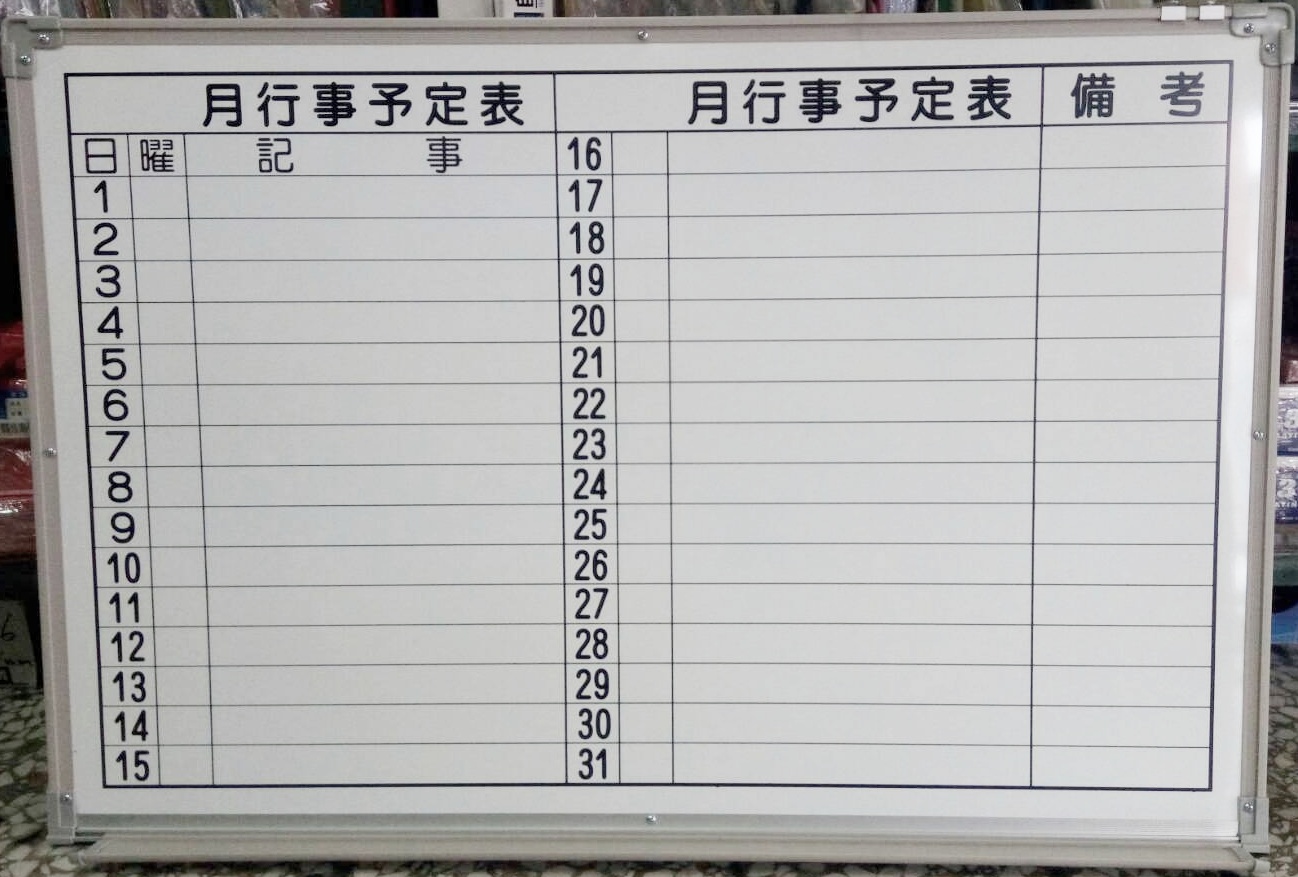 月行事予定表 月行事予定表 備考
日 曜 記事 16
1 17
2 18
3 19
4 20
5 21
6 22
7 23
8 24
9 25
10 26
11 27
12 28
13 29
14 30
15 31